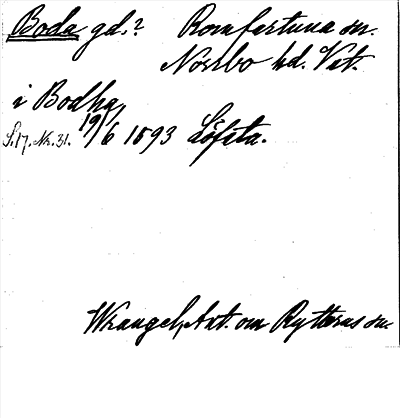 Boda gd.? Romfartuna sn.
Norrbo hd. Vst.
i Bodha,
S.17. Nr. 31. 19/6 1593 Löfsta.
Wrangel, Ant. om Rytterns sn.